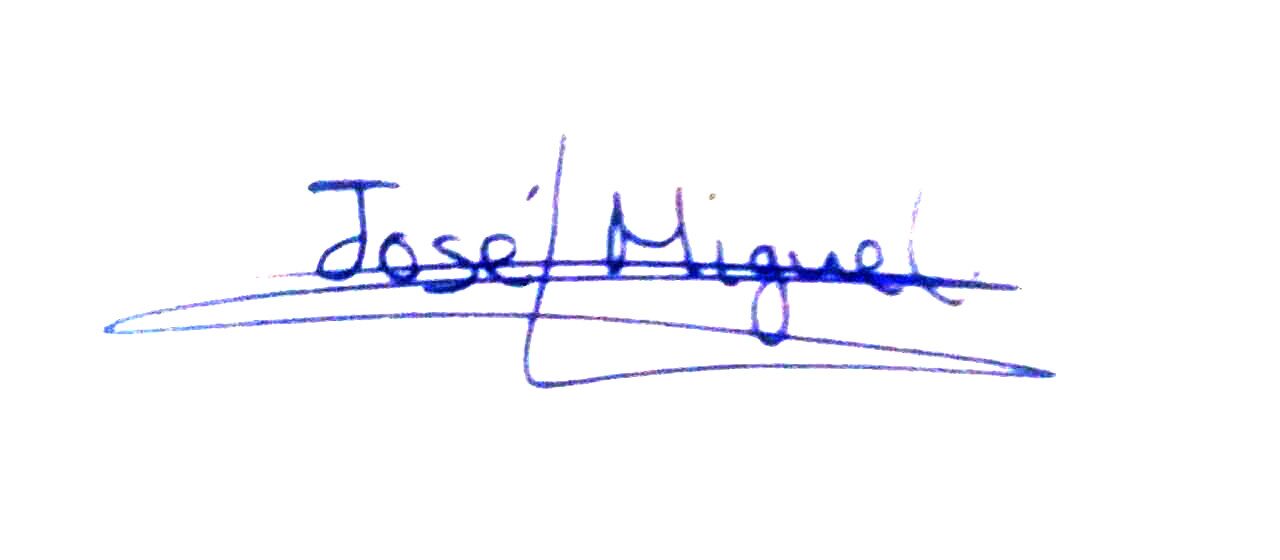 José Miguel